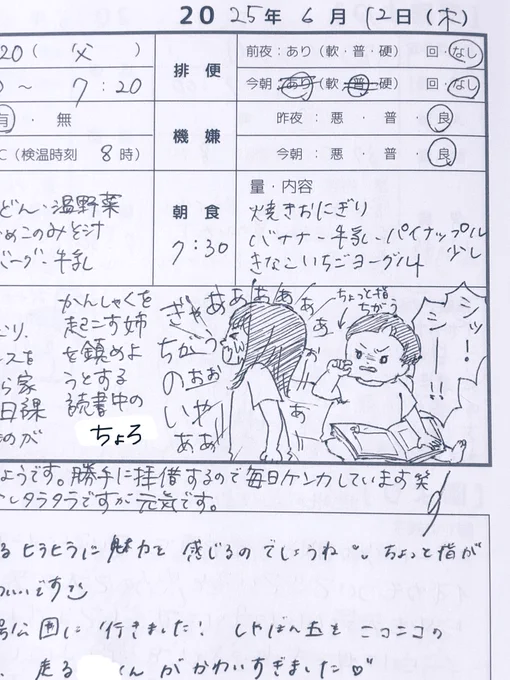 2025年 6月 12日(木)
20(父)
~ 7:20
有・無
℃(検温時刻 8時)
どん・温野菜
めこのみそ汁
バーグ・牛乳
排便
前夜:あり(軟・普・硬) 回・なし
今朝:あり(軟・普・硬) 回・なし
機嫌
昨夜:悪・普・良
今朝:悪・普・良
朝食
7:30
量・内容
焼きおにぎり
バナナ・牛乳・パイナップル少し
きなこいちごヨーグルト
ら家
日課
のが
かんしゃくを
起こす姉
を鎮めよ
うとする
読書中の
ちょろ
ぎゃああああああ
ちがう
のおお
いや
ああ
あ
あ
ちょっと指
ちがう
シッ!
シー!!
ようです。勝手に拝借するので毎日ケンカしています笑
タラタラですが元気です。
るヒラヒラに魅力を感じるのでしょうね。ちょっと指が
いいです
公園に行きました。しゃぼん玉をニコニコの
走る くんがかわいすぎました♡